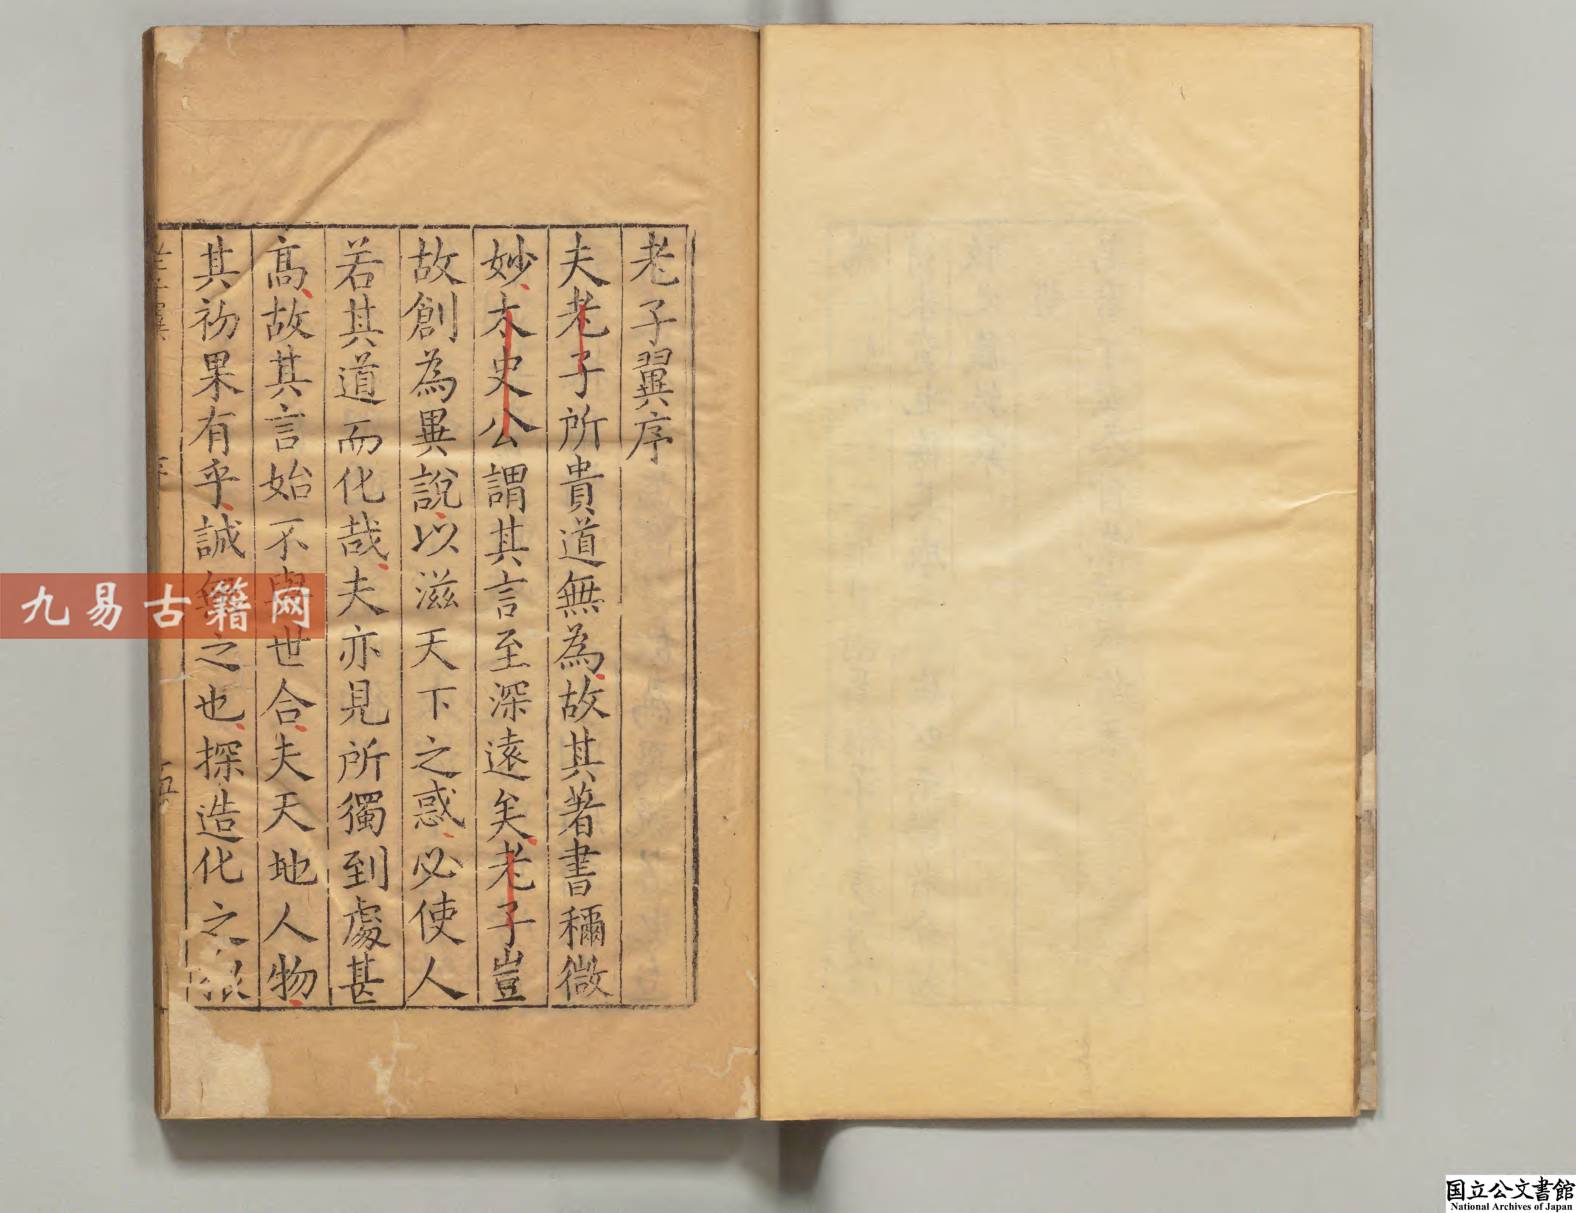 老子翼序
夫老子所貴道無為故其著書穪微
妙太史公謂其言至深遠矣老子豈
故創為異說以滋天下之惑必使人
若其道而化哉夫亦見所獨到處甚
高故其言始不與世合夫天地人物
其初果有乎誠無之也探造化之根
九易古籍网
国立公文書館
National Archives of Japan